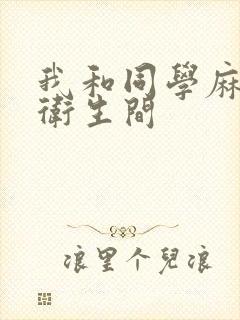 我和同學麻
衛生間
浪里个兒浪